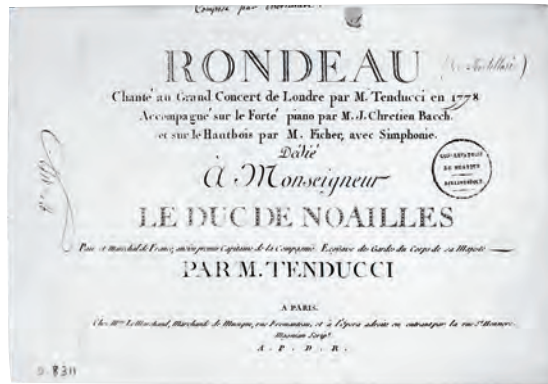 Composé par
RONDEAU
Chanté au Grand Concert de Londre par M. Tenducci en 1778
Accompagné sur le Forté piano par M. J. Chretien Bacch.
et sur le Hautbois par M. Ficher, avec Simphonie.
Dédié
À Monseigneur
LE DUC DE NOAILLES
Pair et Maréchal de France, ancien premier Capitaine de la Compagnie Ecossaise des Gardes du Corps de sa Majesté
PAR M. TENDUCCI
A PARIS.
Chez Mme Le Marchand, Marchande de Musique, rue Fromenteau, et à l'Opera adroite en entrant par la rue St. Honnore.
A. P. D. R.